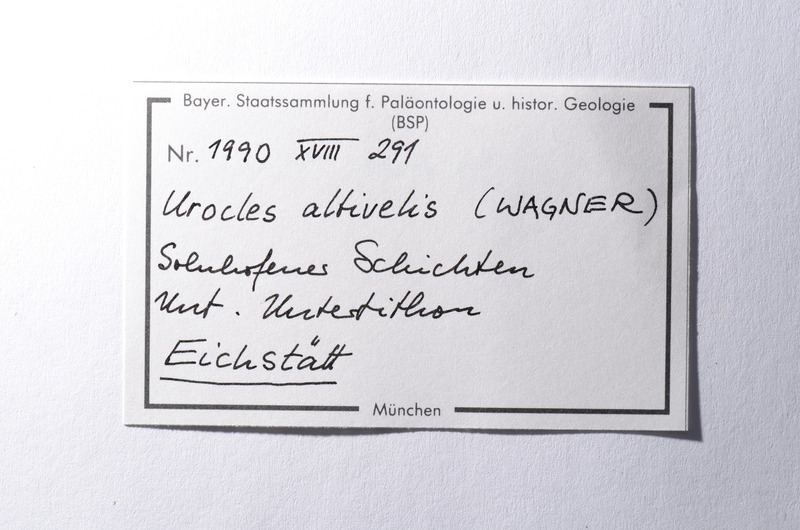 Bayer. Staatssammlung f. Paläontologie u. histor. Geologie
(BSP)
Nr. 1990 XVIII 291
Urocles altivelis (WAGNER)
Solnhofener Schichten
Unt. Untertithon
Eichstätt
München